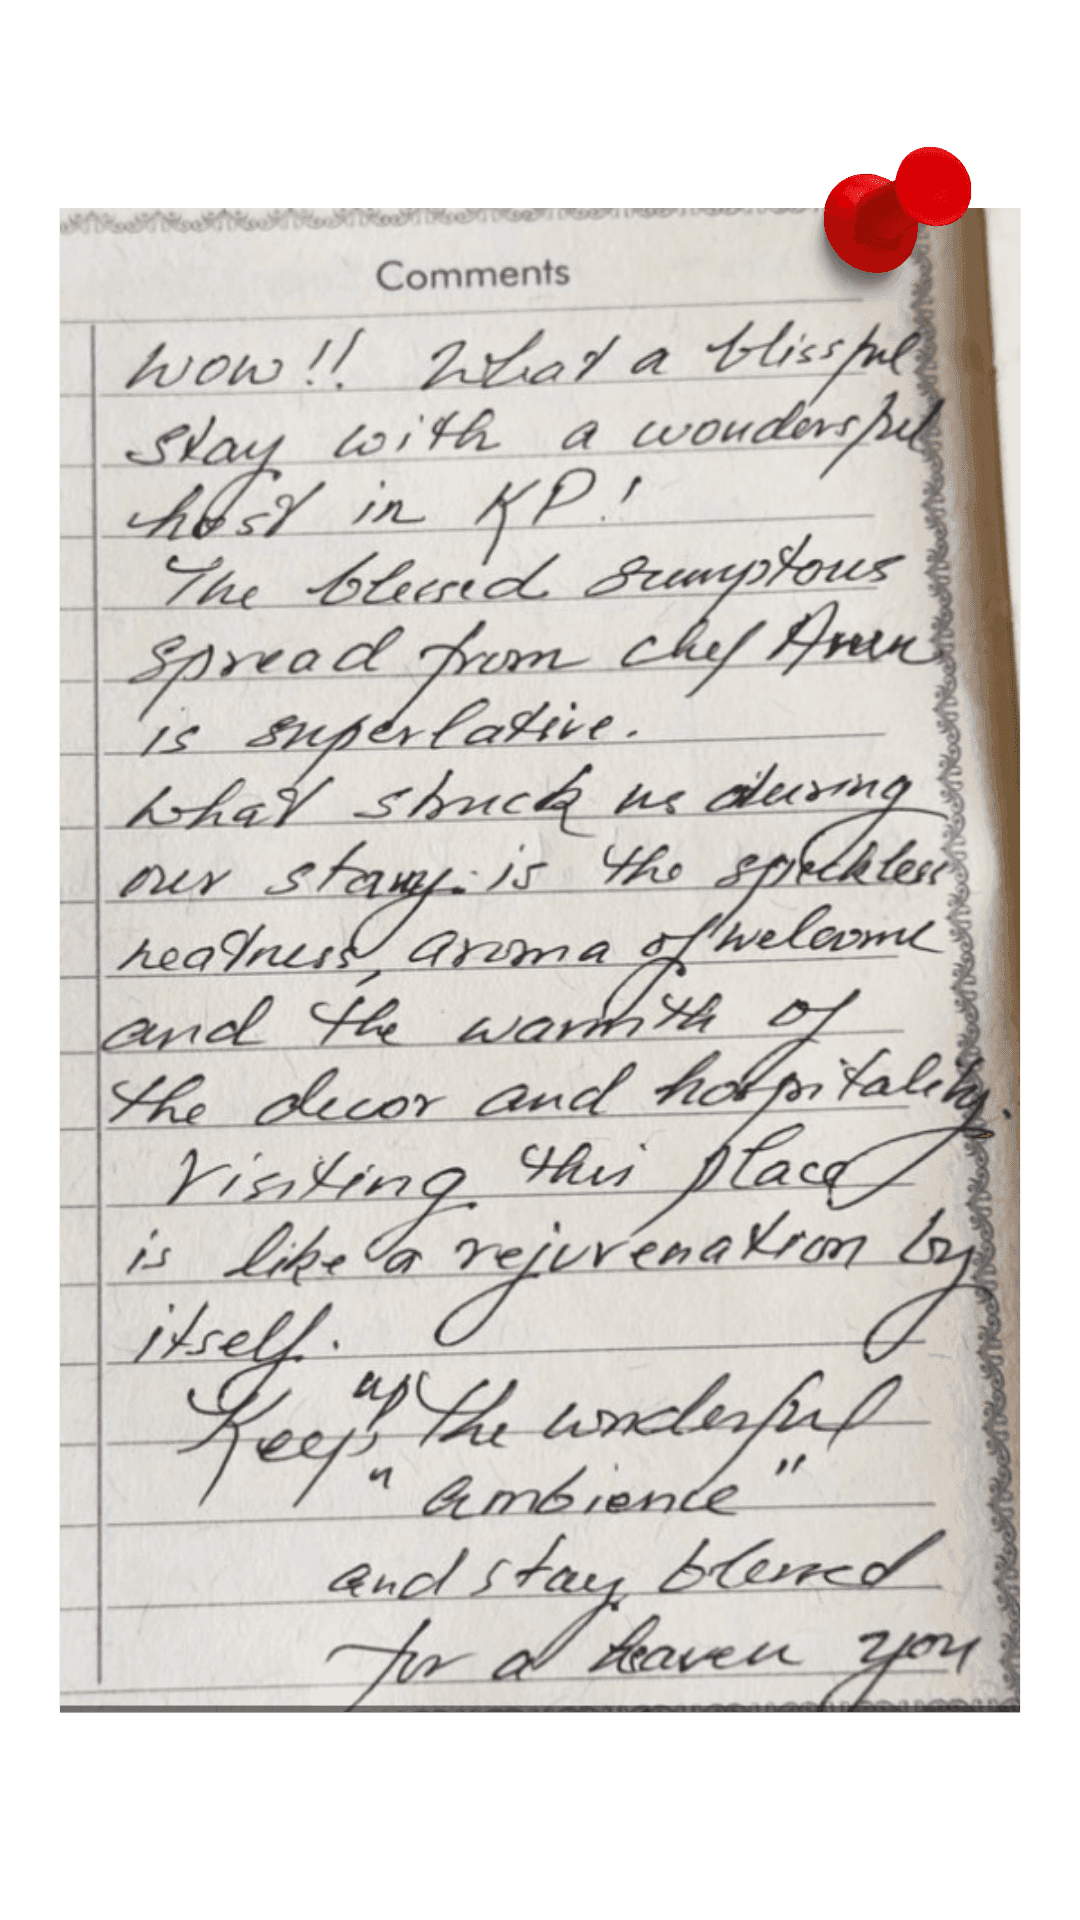 Comments
Wow!! What a blissful
stay with a wondersful
host in KP!
The blessed sumptous
spread from chef Arun
is superlative.
What struck us during
our stay is the speckless
neatness, aroma of welcome
and the warmth of
the decor and hospitality.
Visiting this place
is like a rejuvenation by
itself.
Keep up the wonderful
"ambience"
and stay blessed
for a heaven you